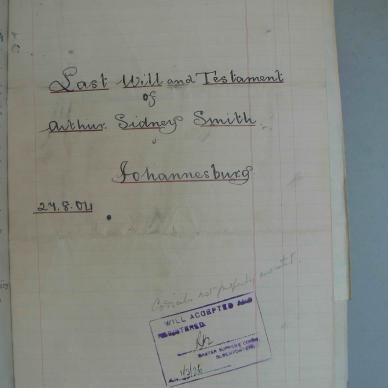 Last Will and Testament
of
Arthur Sidney Smith
Johannesburg
27.8.04
not properly
WILL ACCEPTED AND
REGISTERED.
MASTER SUPREME COURT